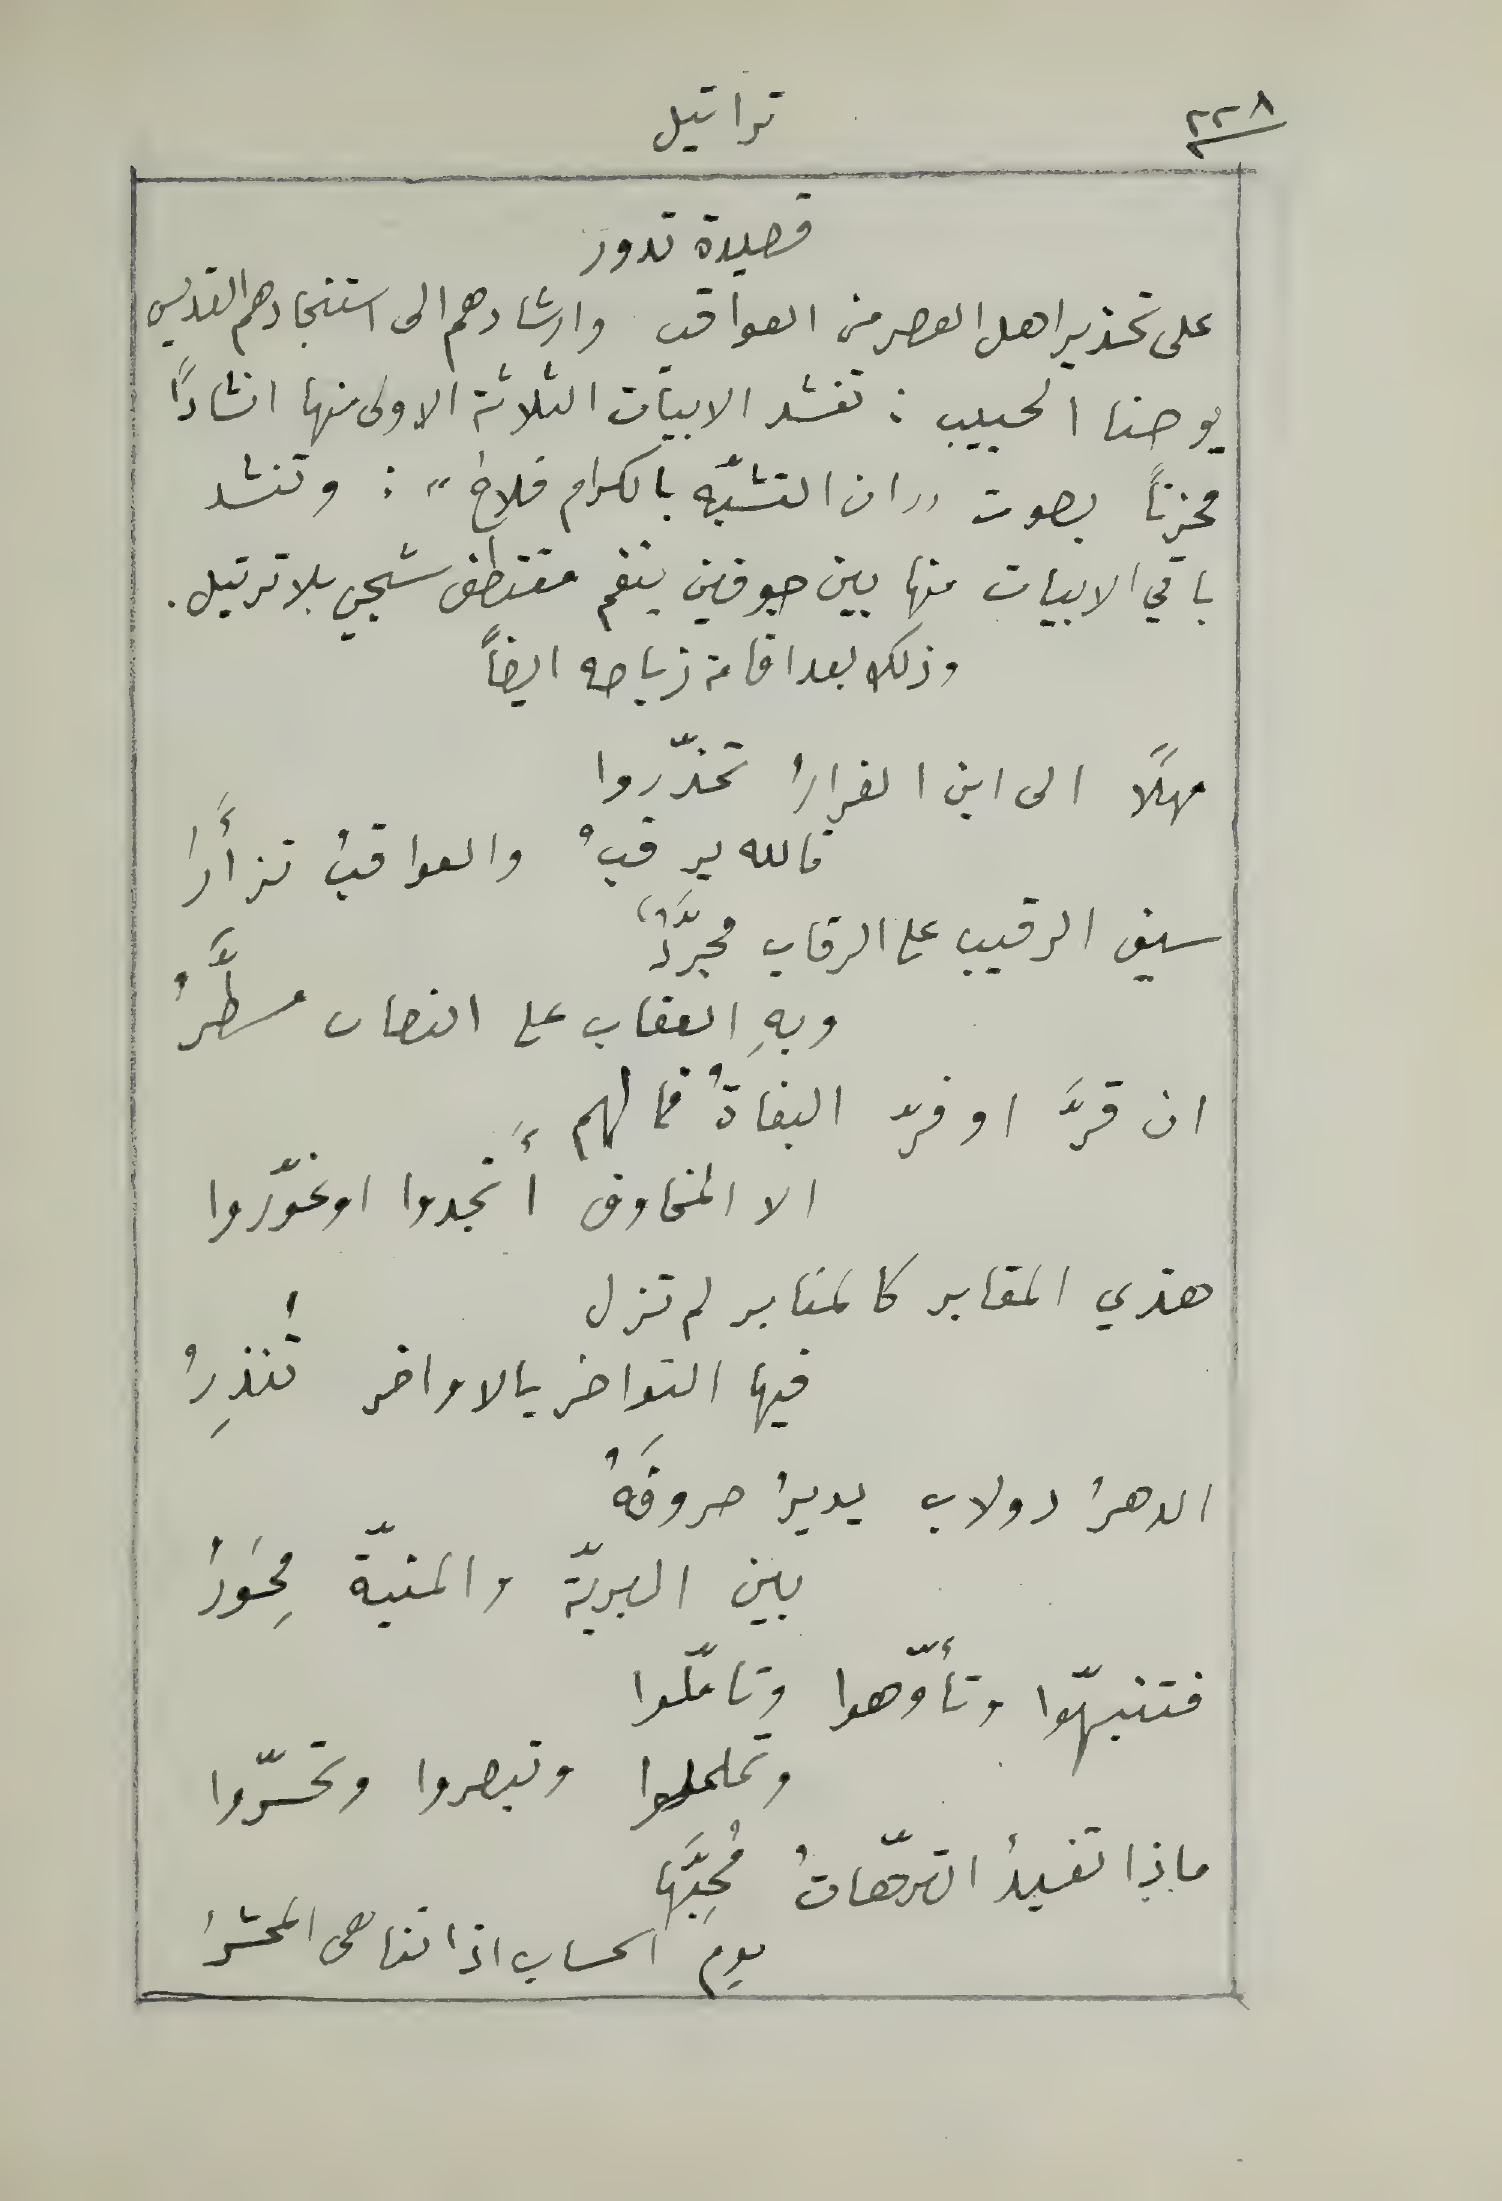 ٢٢٨
تراتيل
قصيدة تدور
على تحذير اهل العصر من العواقب وارشادهم الى استنجادهم القديس
يوحنا الحبيب : تنشد الابيات الثلاثة الاولى منها انشادًا
محزنًا بصوت „ ان التشبّه بالكرام فلاحُ “ : وتنشد
باقي الابيات منها بين جوقين بنغم مقتطف شجي بلا ترتيل .
وذلك بعد اقامة زياحه ايضاً
مهلًا الى اين الفرارُ تحذّروا
فالله يرقبُ والعواقبُ تزأَرُ
سيف الرقيب على الرقاب مجرَّدٌ
وبهِ العقاب على النصاب مسطَّرُ
ان قرَّ او فرّ البغاةُ فما لهم
الا المخاوف أَنجدوا او غوّروا
هذي المقابر كالمنابر لم تزل
فيها النواخر بالاواخر تُنذِرُ
الدهرُ دولاب يديرُ صروفَهُ
بين البريّة والمنيّة مِحوَرُ
فتنبهّوا وتأوّهوا وتاملّوا
وتململوا وتبصروا وتحسّروا
ماذا تفيدُ الترّهاتُ مُحِبَّها
يوم الحساب اذا تناهى المحشرُ